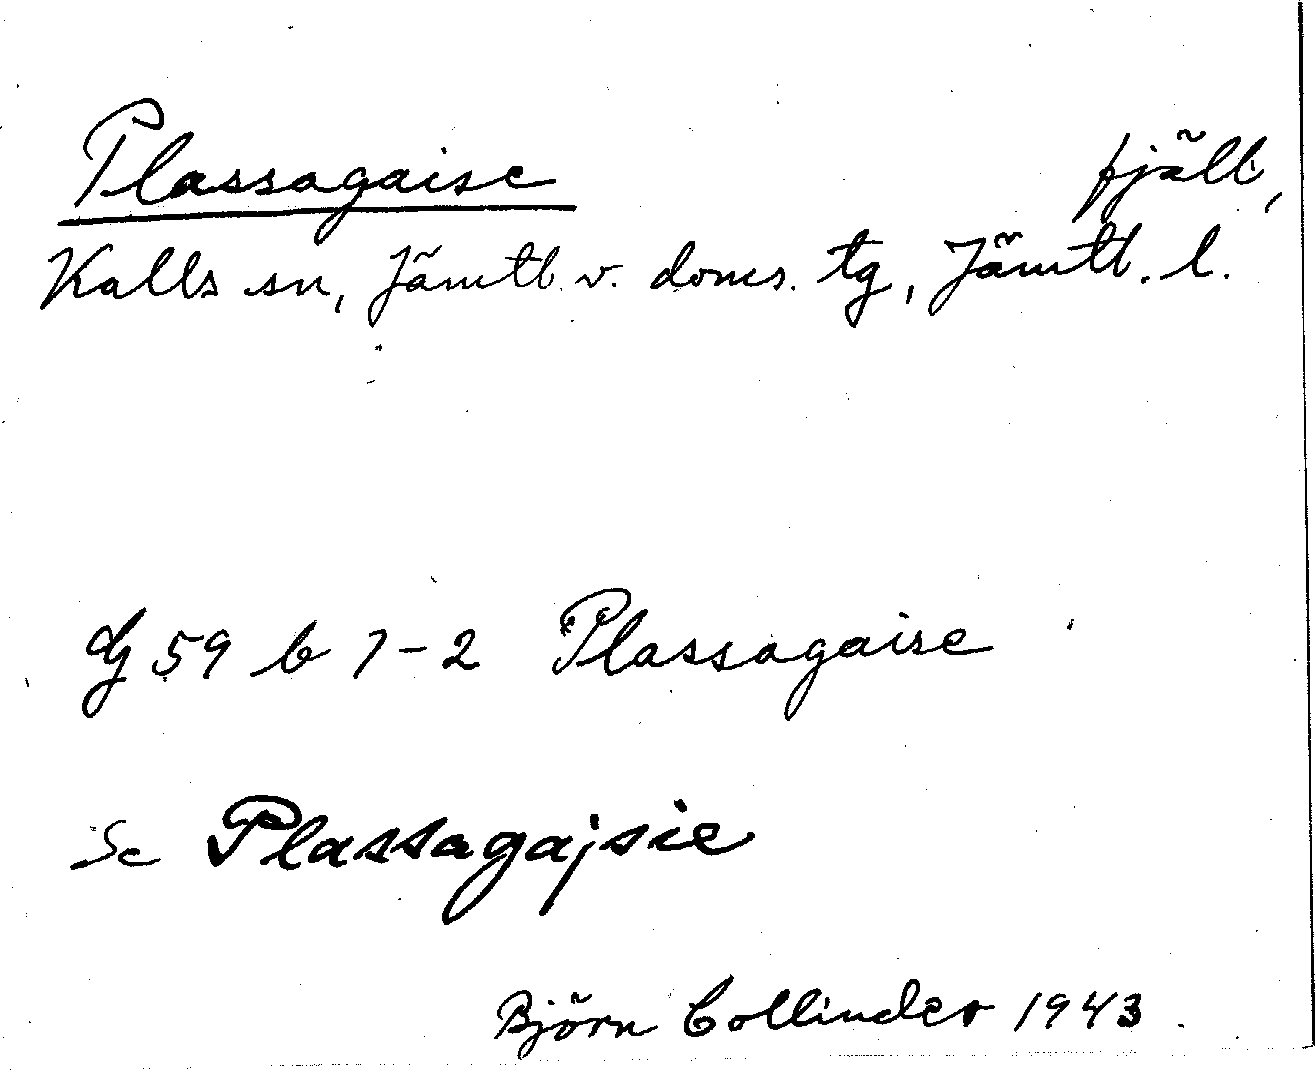 Plassagaise fjäll,
Kalls sn, Jämtl. v. doms. tg, Jämtl. l.
dg 59 b 1-2 Plassagaise
Se Plassagajsie
Björn Collinder 1943.